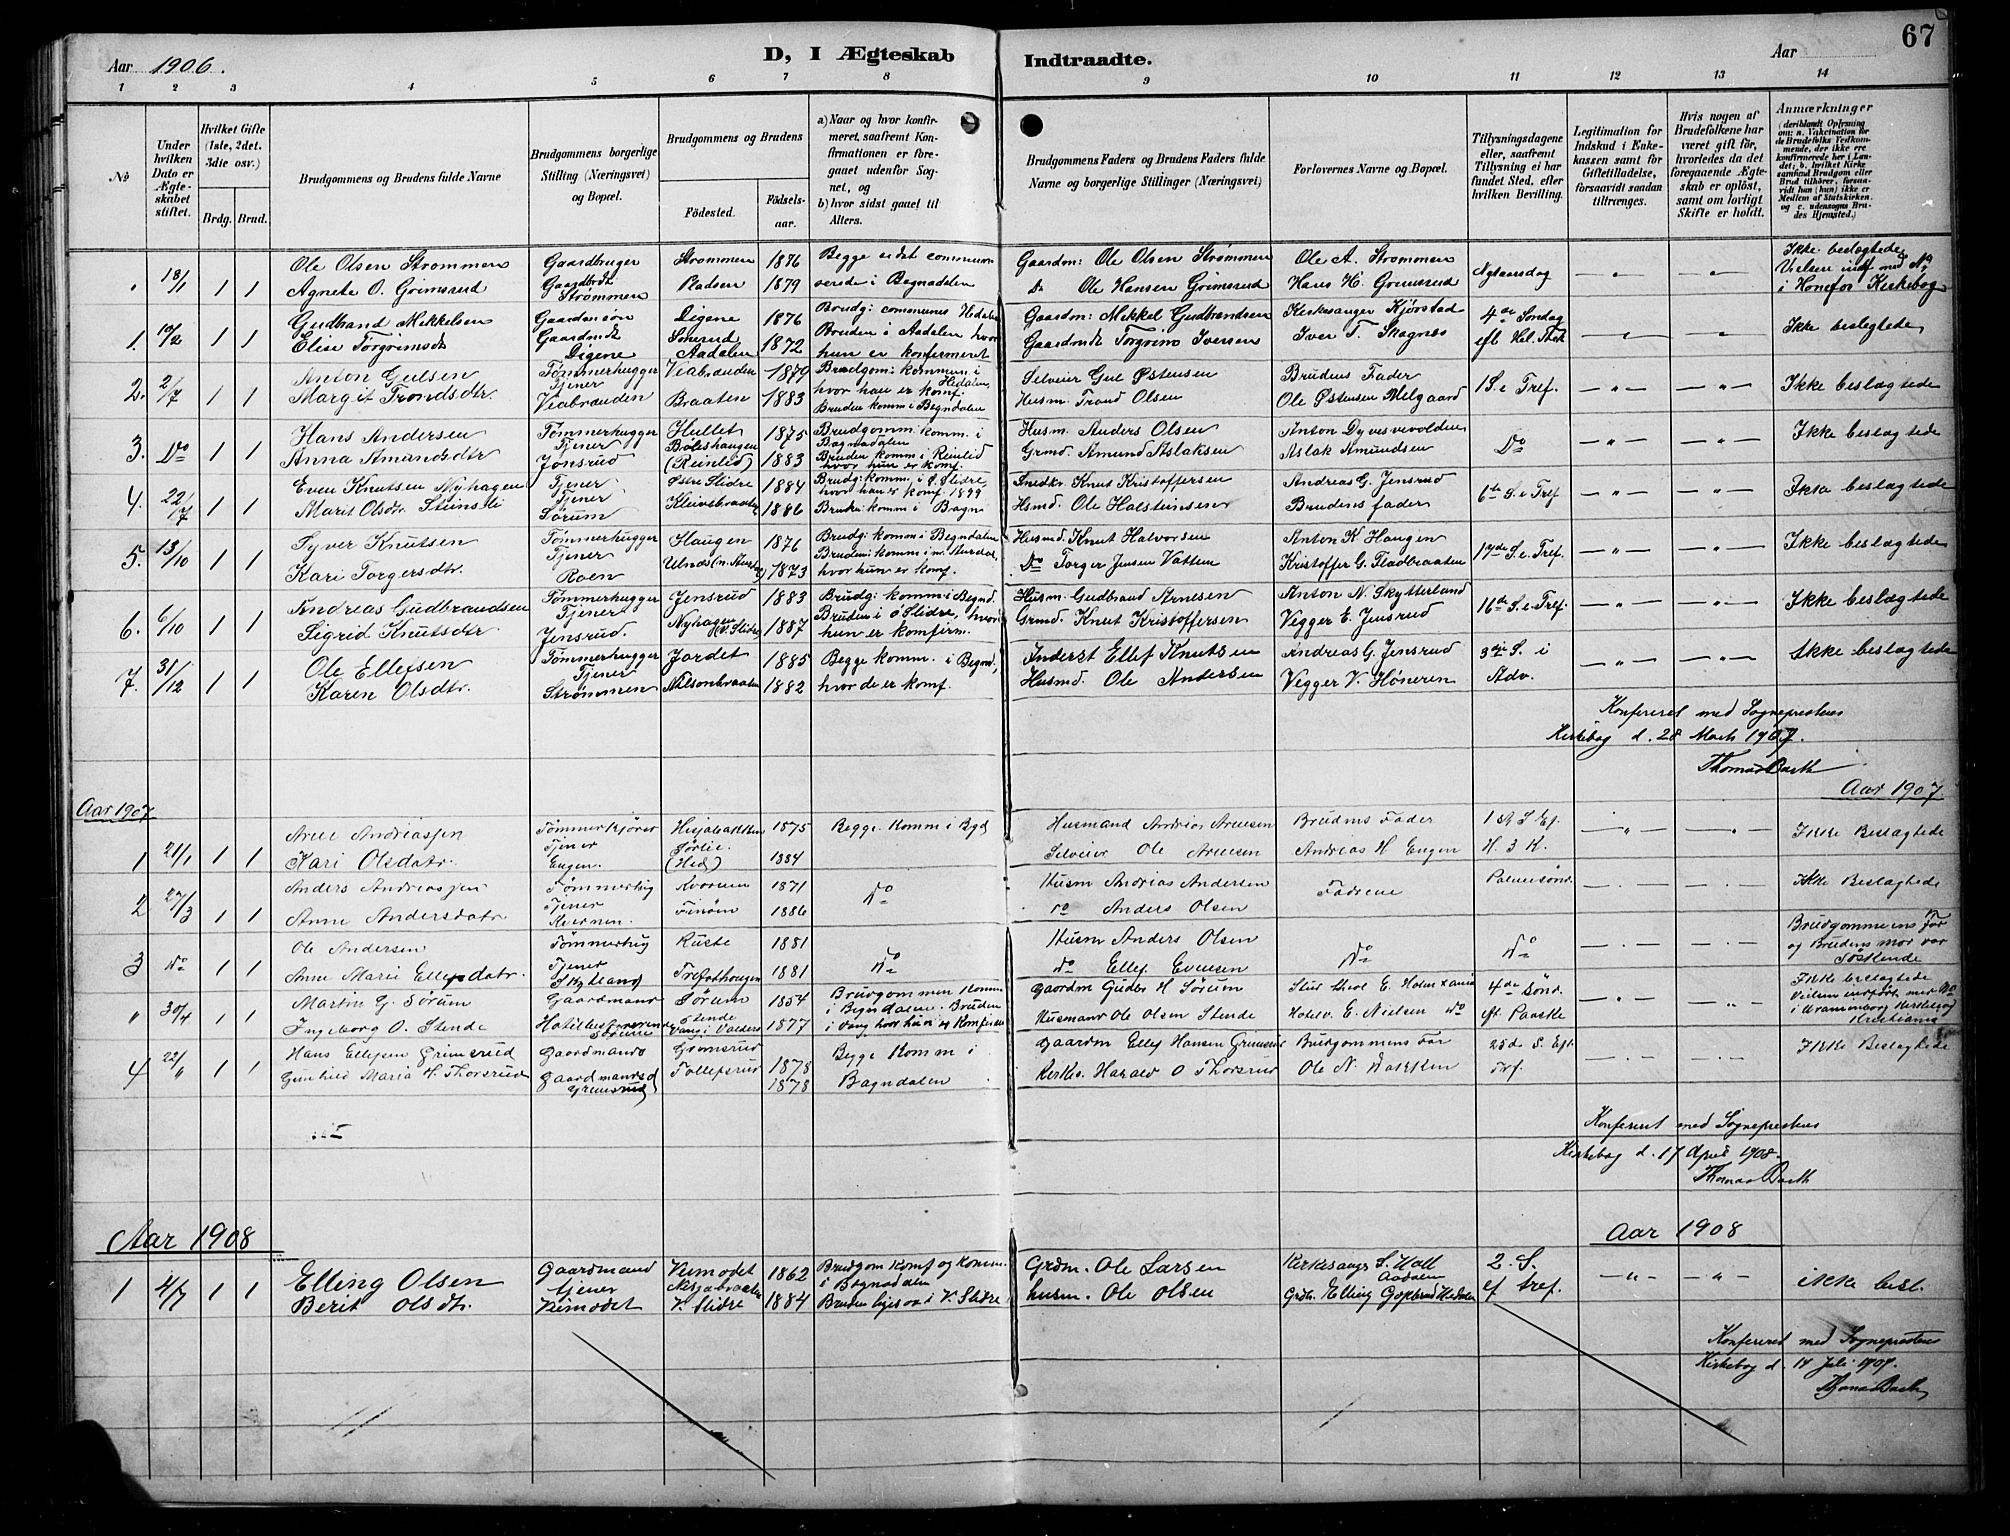 67
Aar 1906.
D, I Ægteskab Indtraadte.
Aar
1 2 3 4 5 6 7 8 9 10 11 12 13 14
No
Under hvilken Dato er Ægteskabet stiftet.
Hvilket Gifte (1ste, 2det, 3die osv.)
Brdg. Brud.
Brudgommens og Brudens fulde Navne
Brudgommens borgerlige Stilling (Næringsvei) og Bopæl.
Brudgommens og Brudens
Fødested. Fødselsaar.
a) Naar og hvor konfirmeret, saafremt Konfirmationen er foregaaet udenfor Sognet, og
b) hvor sidst gaaet til Alters.
Brudgommens Faders og Brudens Faders fulde Navne og borgerlige Stillinger (Næringsvei)
Forlovernes Navne og Bopæl.
Tillysningsdagene eller, saafremt Tillysning ei har fundet Sted, efter hvilken Bevilling.
Legitimation for Indskud i Enkekassen samt for Giftetilladelse, forsaavidt saadan tiltrænges.
Hvis nogen af Brudefolkene har været gift før, hvorledes da det foregaaende Ægteskab er opløst, samt om lovligt Skifte er holdt.
Anmærkninger
(deriblandt Oplysning om: a. Vakcination for de Brudefolks Vedkommende, der ikke ere konfirmerede her i Landet; b. hvilket Kirkesamfund Brudgom eller Brud tilhører, forsaavidt han (hun) ikke er Medlem af Statskirken, og c. udensogns Brudes Hjemsted.)
" 18/1 1 1 Ole Olsen Strømmen Gaardbruger Strømmen 1876 Begge er det Gaardm: Ole Olsen Strømmen Ole A. Strømmen Nytaarsdag Ikke beslegtede
Agnete O. Grimsrud Gaardbdt Strømmen Pladsen 1879 i Begnadalen Do Ole Hansen Grimsrud Hans H. Grimsrud i Hønefos Kirkebog
1. 10/2 1 1 Gudbrand Mikkelsen Gaardmansøn Digene 1876 Brudg: Hedalen Gaardm: Mikkel Gudbrandsen Kirkesanger Kjørstad 4de Søndag Ikke beslegtede
Elise Torgrimsdt Gaardmdt Digene Aadalen 1872 Bruden i Aadalen, hvor hun er konfirmeret Gaardmdt Torgrim Iversen Iver T. Skagnes
2. 2/7 1 1 Anton Gulsen Tømmerhugger Viabrauden 1879 Brudgom: kommun. i Hedalen, hvor han er komf. Selveier Gul Østensen Brudens Fader 1 S. e Tref. Ikke beslægtede
Margit Trondsdtr. Tjener Viabrauden Braaten 1883 Bruden komm i Begndalen Husm. Trond Olsen Ole Østensen Melgaard
3. Do 1 1 Hans Andersen Tømmerhugger Hullet 1875 Brudgom. komm. i Bagnadalen Husm. Anders Olsen Anton Dyvesvevolden Do Ikke beslægtede
Anna Amundsdtr Tjener Jonsrud Bøleshaugen (Reinlid) 1883 Bruden komm i Reinlid hvor hun er komf. Grmd. Amund Aslaksen Aslak Amundsen
4. 22/7 1 1 Even Knutsen Nyhagen Tjener Østre Slidre 1884 Brudg: komm. i Ø. Slidre, hvor han er komf. 1899 Snedkr. Knut Kristoffersen Andreas G. Jensrud 6te S. e Tref Ikke beslægtede
Marit Olsdtr. Tjener Sørum Kleivebraaten 1886 komm i Bagn Hsmd. Ole Halsteinsen Brudens fader
5. 13/10 1 1 Syver Knutsen Tømmerhugger Haugen 1876 Brudg: komm i Begndalen Husmd. Knut Halvorsen Anton K Haugen 17de S. e. Tref. Ikke beslægtede
Kari Torgersdtr. Tjener Roen Ulnes (n. Aurdal) 1873 Bruden: komm i n. Aurdal, hvor hun er komf. Do Torger Jensen Vatten Kristoffer G. Fladbraaten
6. 6/10 1 1 Andreas Gudbrandsen Tømmerhugger Jensrud 1883 Brudg: komm i Begnd. Husm. Gudbrand Arnesen Anton N. Skytterland 16de S. e Tref. Ikke beslægtede
Sigrid Knutsdtr Tjener Jensrud. Nyhagen 1887 Bruden i ø Slidre, hvor hun er komfirm. Grmd. Knut Kristoffersen Vegger E. Jensrud
7. 31/12 1 1 Ole Ellefsen Tømmerhugger Jordet 1885 Begge komm. i Begnd, Inderst Ellef Knutsen Andreas G. Jensrud 3die S. i Ikke beslægtede
Karen Olsdtr. Tjener Strømmen Nilsonbraaten 1882 hvor de er komf. Husmd. Ole Andersen Vegger V. Høneren Adv.
Konfereret med Sogneprestens
Kirkebog d. 28 Marts 1907.
Thomas Barth
Aar 1907 Aar 1907.
1 21/1 1 1 Arne Andriassen Tømmerkjører 1875 Begge Komm i Bgd Husmand Andrias Arnesen Brudens Fader 1 st S Ef. Ikke Beslagtede
Kari Olsdatr. Tjener Engen. Sørlie (Hed) 1884 Selveier Ole Arnesen Andreas H Engen H. 3 K.
2 27/3 1 1 Anders Andriassen Tømmerhug 1871 Do Husm Andrias Andersen Fædrene Palmesønd. Ikke Beslagtede
Anne Andersdatr Tjener 1886 Do Anders Olsen
3 Do 1 1 Ole Andersen Tømmerhug Ruste 1881 Do Husm Anders Olsen Do Do Brudgommens Far
Anne Marie Ellefsdatr. Tjener Skytland 1881 Do Ellef Evensen og Brudens mor var Søskende
" 30/4 1 1 Martin G. Sørum Gaardmand Sørum 1854 Brudgommen Komm i Begndalen. Bruden Gaardm Gudbr H Sørum 4de Sønd. Ikke beslegtede
Ingeborg O. Stende Stende Vang i Valders 1877 i Vang hvor hun og Konfirm Husmand Ole Olsen Stende E. Nielsen Do eft. Paaske Kristiania
4 22/" 1 1 Hans Ellefsen Grimsrud Gaardmands Grimsrud 1878 Begge Komm i Gaardm Ellef Hansen Grimsrud Brudgommens Far 25de S. Eft. Ikke Beslagtede
Gunhild Maria H. Thorsrud Gaardmandsd Grimsrud Tollefsrud 1878 Bagndalen Kirkes. Harald O Thorsrud Ole N. Bakken Trf.
Konfereret med Sogneprestens
Kirkebog d. 17 April 1908.
Thomas Barth
Aar 1908 Aar 1908
1 4/7 1 1 Elling Olsen Gaardmand Veimodet 1862 Brudgom komf og komm. i Bagnadalen Grdm. Ole Larsen Kirkesangr S. Hall Aadalen 2. S. ikke besl.
Berit Olsdtr. tjener Veimodet V. Slidre 1884 Bruden ligesaa i V. Slidre husm. Ole Olsen Grdbr. Elling Goplerud Hedalen ef tref.
Konfereret med Sogneprestens
Kirkebog d. 14 Juli 1909.
Thomas Barth